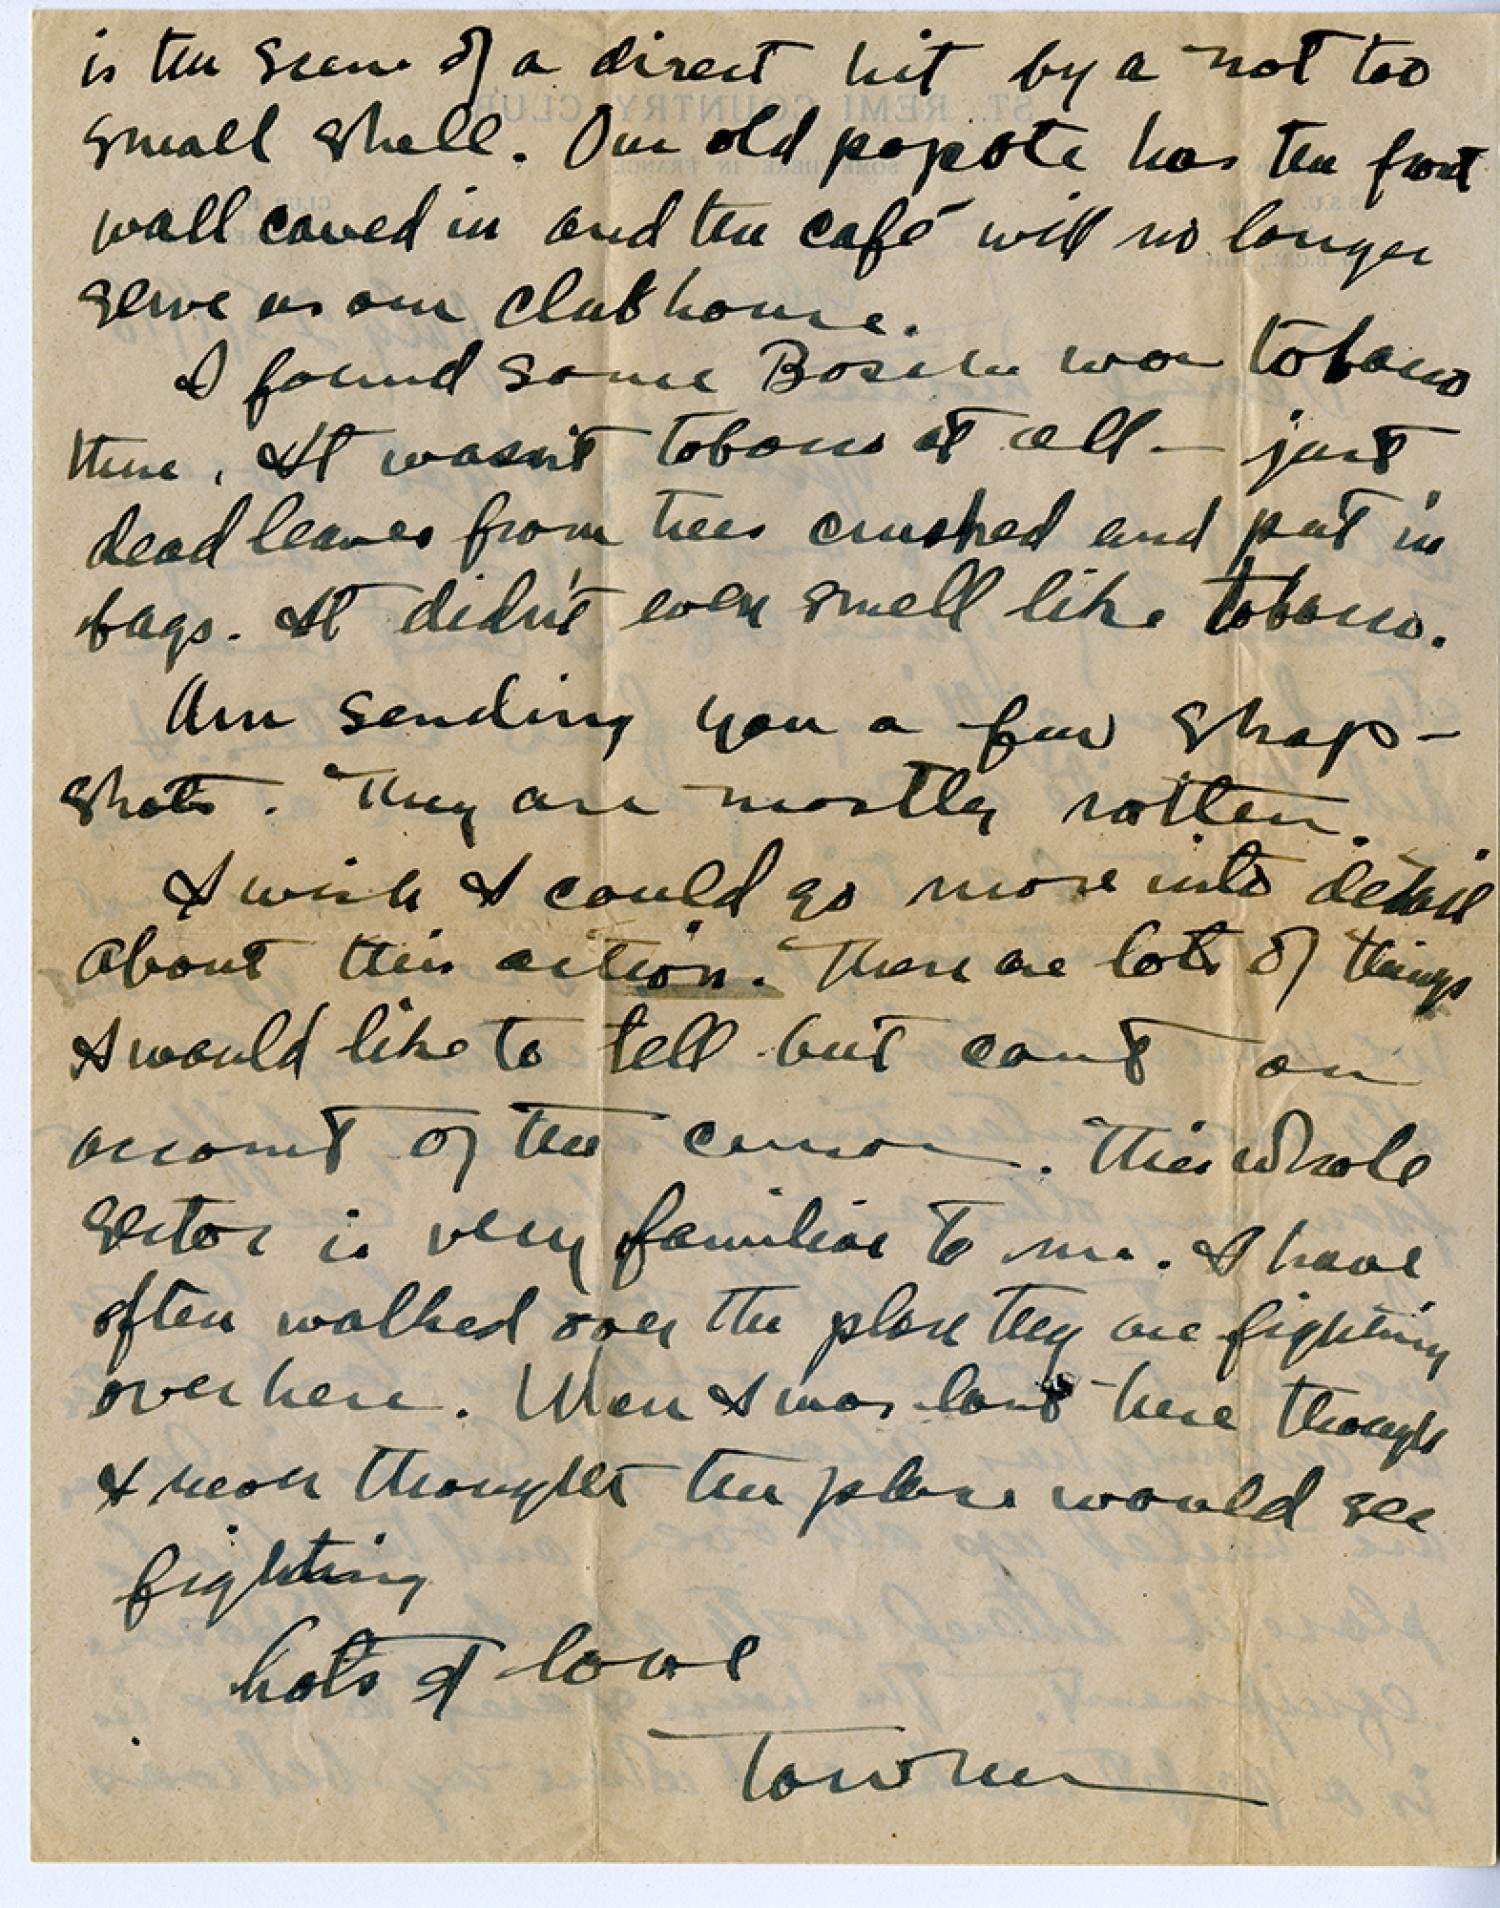 is the scene of a direct hit by a not too
small shell. Our old popote has the front
wall caved in and the café will no longer
serve as our clubhouse.
I found some Bosche war tobacco
there. It wasn't tobacco at all — just
dead leaves from trees crushed and put in
bags. It didn't even smell like tobacco.
Am sending you a few snap-
shots. They are mostly rotten.
I wish I could go more into detail
about this action. There are lots of things
I would like to tell but can't on
account of the censor. This whole
sector is very familiar to me. I have
often walked over the place they are fighting
over here. When I was last here though
I never thought the place would see
fighting
Lots of love
ST. REMI COUNTRY CLUB
SOMEWHERE IN FRANCE